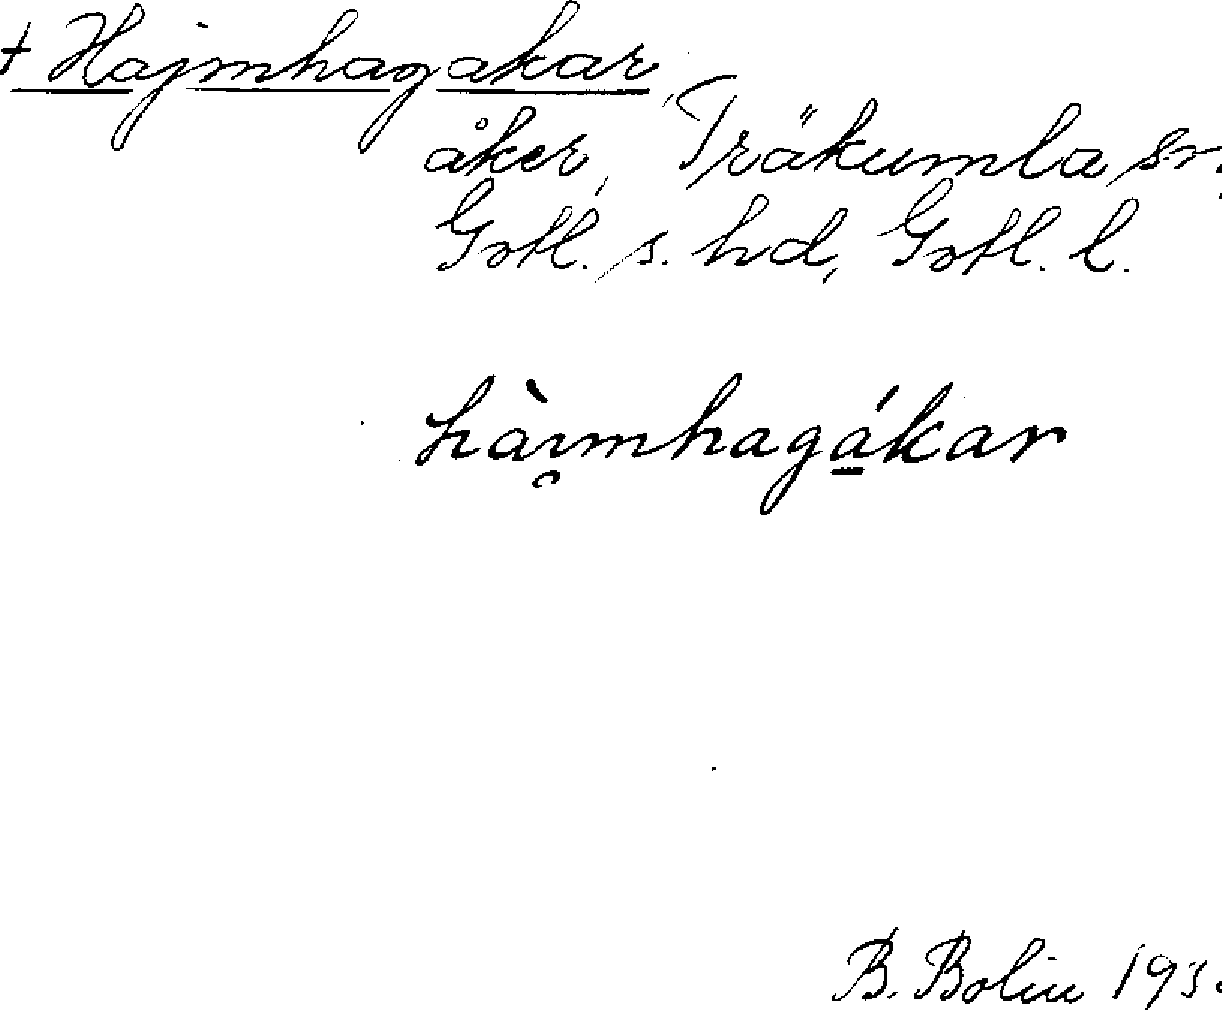 + Hajmhagakar,
åker, Träkumla sn,
Gotl. s. hd, Gotl. l.
hàı̯mhagá̱kar
B. Bolin